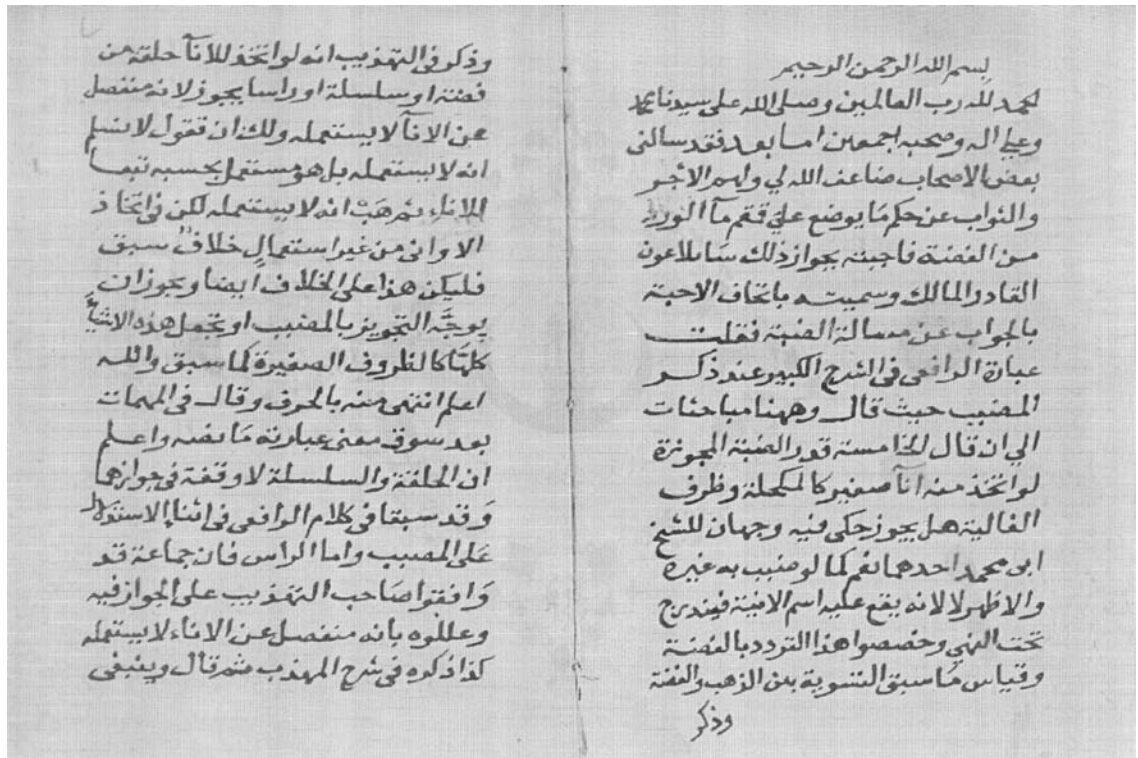 بسم الله الرحمن الرحيم
الحمد لله رب العالمين وصلى الله على سيدنا محمد
وعلى اله وصحبه اجمعين اما بعد فقد سالنى
بعض الاصحاب ضاعف الله لي ولهم الاجر
والثواب عن حكم ما يوضع علي قمقم مآ الورد
من الفضة فاجبته بجواز ذلك سايلا عون
القادر المالك وسميته باتحاف الاحبة
بالجواب عن مسالة الضبة فقلت
عبارة الرافعى فى الشرح الكبير عند ذكر
المضبب حيث قال وههنا مباحثات
الي ان قال الخامسة قدر الضبة المجوزة
لو اتخذ منه انآ صغير كالمكحلة وظرف
الغالية هل يجوز حكى فيه وجهان للشيخ
ابى محمد احدهما نعم كما لو ضبب به غيره
والاظهر لا لانه يقع عليه اسم الانية فيندرج
تحت النهي وخصصوا هذا التردد بالفضة
وقياس ما سبق التسوية بين الذهب والفضة
وذكر
وذكر فى التهذيب انه لو اتخذ للانآ حلقة من
فضة او سلسلة او راسا يجوز لانه منفصل
عن الانآ لا يستعمله ولك ان تقول لا نسلم
انه لا يستعمله بل هو مستعمل بحسبه تبعا
للاناء ثم هَبْ انه لا يستعمله لكن فى اتخاذ
الاوانى من غير استعمالٍ خلافٌ سبق
فليكن هذا على الخلاف ايضا ويجوز ان
يوجَّه التجويز بالمضبب او تجعل هذه الاشيأ
كلها كالظروف الصغيرة كما سبق والله
اعلم انتهى منه بالحرف وقال فى المهمات
بعد سوق معنى عبارته ما نصه واعلم
ان الحلقة والسلسلة لا وقفة فى جوازهما
وقد سبقا فى كلام الرافعى فى اثناء الاستدلال
على المضبب واما الراس فان جماعة قد
وافقوا صاحب التهذيب على الجواز فيه
وعللوه بانه منفصل عن الاناء لا يستعمله
كذا ذكره فى شرح المهذب ثم قال وينبغى